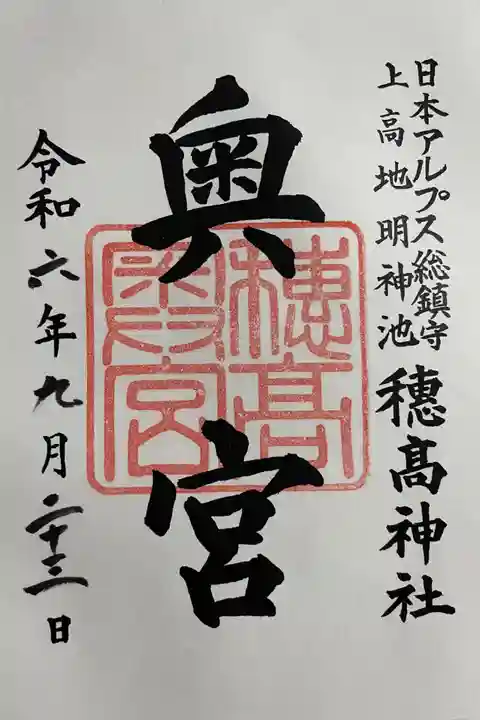 日本アルプス総鎮守
上高地明神池
穂髙神社
奥宮
穂高
奥宮
令和六年九月二十三日